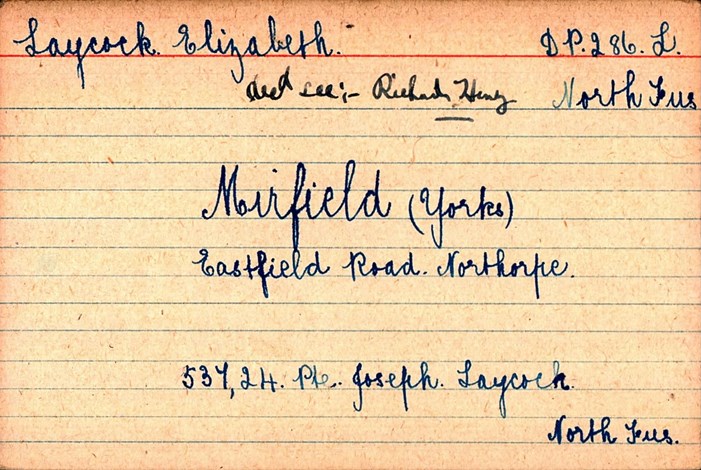 Laycock. Elizabeth. D.P.286.L.
decd see:- Richards Henry North Fus
Mirfield (Yorks)
Eastfield Road. Northorpe.
53724. Pte. Joseph. Laycock.
North Fus.